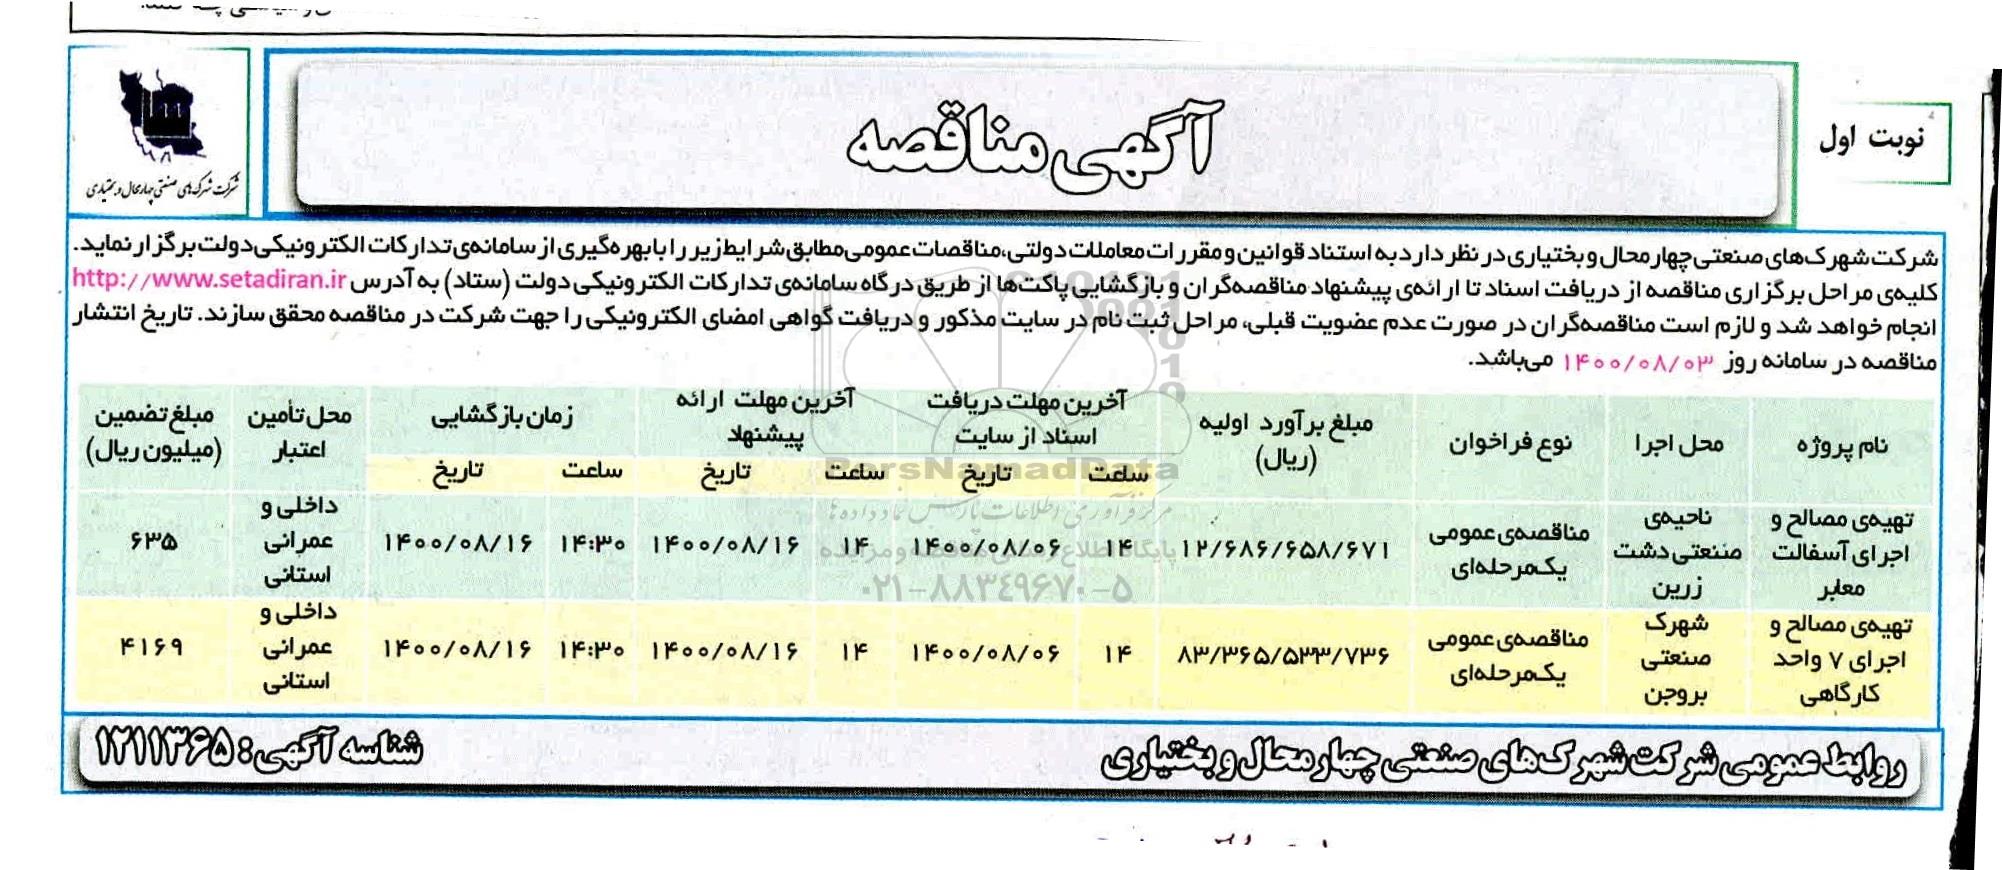 نوبت اول
آگهی مناقصه
شرکت شهرک‌های صنعتی چهارمحال و بختیاری
شرکت شهرک‌های صنعتی چهارمحال و بختیاری در نظر دارد به استناد قوانین و مقررات معاملات دولتی، مناقصات عمومی مطابق شرایط زیر را با بهره‌گیری از سامانه‌ی تدارکات الکترونیکی دولت برگزار نماید.
کلیه‌ی مراحل برگزاری مناقصه از دریافت اسناد تا ارائه‌ی پیشنهاد مناقصه‌گران و بازگشایی پاکت‌ها از طریق درگاه سامانه‌ی تدارکات الکترونیکی دولت (ستاد) به آدرس http://www.setadiran.ir
انجام خواهد شد و لازم است مناقصه‌گران در صورت عدم عضویت قبلی، مراحل ثبت نام در سایت مذکور و دریافت گواهی امضای الکترونیکی را جهت شرکت در مناقصه محقق سازند. تاریخ انتشار
مناقصه در سامانه روز ۱۴۰۰/۰۸/۰۳ می‌باشد.
نام پروژه محل اجرا نوع فراخوان مبلغ برآورد اولیه (ریال) آخرین مهلت دریافت اسناد از سایت آخرین مهلت ارائه پیشنهاد زمان بازگشایی محل تأمین اعتبار مبلغ تضمین (میلیون ریال)
ساعت تاریخ ساعت تاریخ ساعت تاریخ
تهیه‌ی مصالح و اجرای آسفالت معابر ناحیه‌ی صنعتی دشت زرین مناقصه‌ی عمومی یک‌مرحله‌ای ۱۲/۶۸۶/۶۵۸/۶۷۱ ۱۴ ۱۴۰۰/۰۸/۰۶ ۱۴ ۱۴۰۰/۰۸/۱۶ ۱۴:۳۰ ۱۴۰۰/۰۸/۱۶ داخلی و عمرانی استانی ۶۳۵
تهیه‌ی مصالح و اجرای ۷ واحد کارگاهی شهرک صنعتی بروجن مناقصه‌ی عمومی یک‌مرحله‌ای ۸۳/۳۶۵/۵۳۳/۷۳۶ ۱۴ ۱۴۰۰/۰۸/۰۶ ۱۴ ۱۴۰۰/۰۸/۱۶ ۱۴:۳۰ ۱۴۰۰/۰۸/۱۶ داخلی و عمرانی استانی ۴۱۶۹
ParsNamadData
مرکز فرآوری اطلاعات پارس نماد داده‌ها
۰۲۱-۸۸۳۴۹۶۷۰-۵
روابط عمومی شرکت شهرک‌های صنعتی چهارمحال و بختیاری
شناسه آگهی: ۱۲۱۱۳۶۵